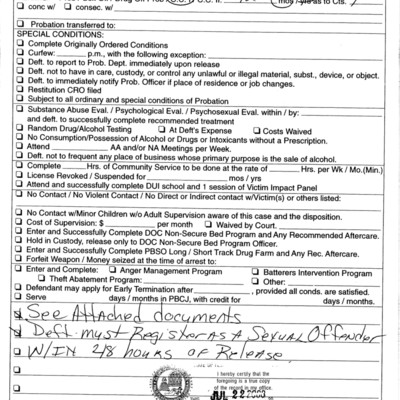 conc w/ consec. w/
Probation transferred to:
SPECIAL CONDITIONS:
Complete Originally Ordered Conditions
Curfew: p.m., with the following exception:
Deft. to report to Prob. Dept. immediately upon release
Deft. not to have in care, custody, or control any unlawful or illegal material, subst., device, or object.
Deft. to immediately notify Prob. Officer if place of residence or job changes.
Restitution CRO filed
Subject to all ordinary and special conditions of Probation
Substance Abuse Eval. / Psychological Eval. / Psychosexual Eval. within / by:
and deft. to successfully complete recommended treatment
Random Drug/Alcohol Testing At Deft's Expense Costs Waived
No Consumption/Possession of Alcohol or Drugs or Intoxicants without a Prescription.
Attend AA and/or NA Meetings per Week.
Deft. not to frequent any place of business whose primary purpose is the sale of alcohol.
Complete Hrs. of Community Service to be done at the rate of Hrs. per Wk / Mo.(Min.)
License Revoked / Suspended for mos / yrs
Attend and successfully complete DUI school and 1 session of Victim Impact Panel
No Contact / No Violent Contact / No Direct or Indirect contact w/Victim(s) or others listed:
No Contact w/Minor Children w/o Adult Supervision aware of this case and the disposition.
Cost of Supervision: $ per month Waived by Court.
Enter and Successfully Complete DOC Non-Secure Bed Program and Any Recommended Aftercare.
Hold in Custody, release only to DOC Non-Secure Bed Program Officer.
Enter and Successfully Complete PBSO Long / Short Track Drug Farm and Any Rec. Aftercare.
Forfeit Weapon / Money seized at the time of arrest to:
Enter and Complete: Anger Management Program Batterers Intervention Program
Theft Abatement Program: Other:
Defendant may apply for Early Termination after , provided all conds. are satisfied.
Serve days / months in PBCJ, with credit for days / months.
See Attached documents
Deft. must Register as a Sexual Offender
W/IN 48 hours of Release
I hereby certify that the
foregoing is a true copy
of the record in my office.
JUL 22 2008